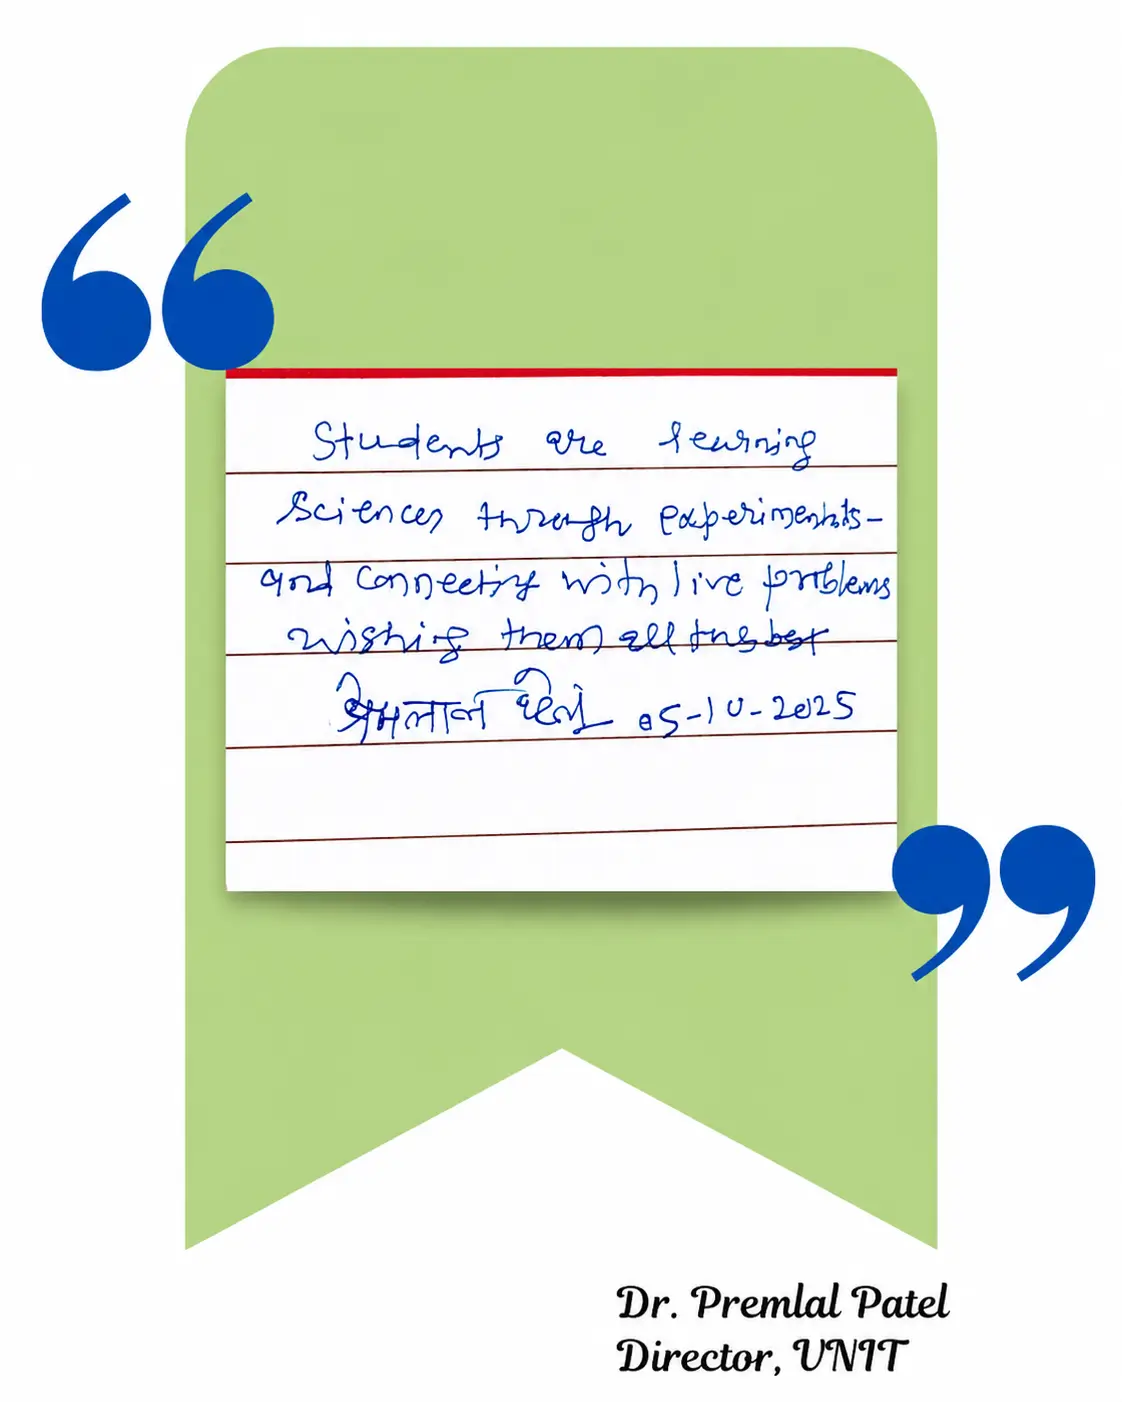 Students are learning
Sciences through experiments-
and connecting with live problems
wishing them all the best
प्रेमलाल पटेल 05-10-2025
Dr. Premlal Patel
Director, UNIT